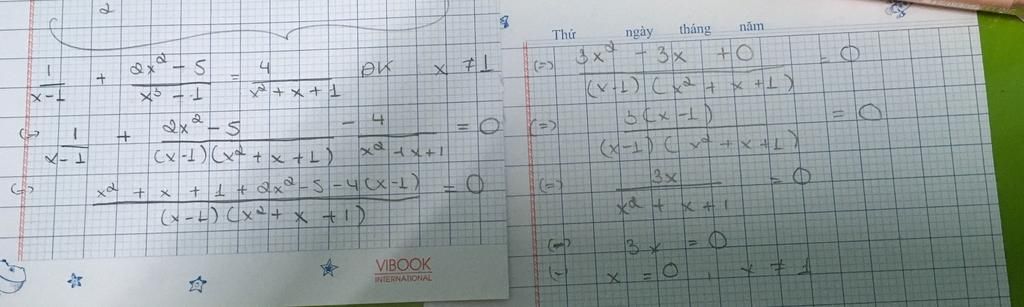 2
1/(x-1) + (2x² - 5)/(x³ - 1) = 4/(x² + x + 1) ĐK x ≠ 1
(=) 1/(x-1) + (2x² - 5)/((x-1)(x² + x + 1)) - 4/(x² + x + 1) = 0
(=) (x² + x + 1 + 2x² - 5 - 4(x-1))/((x-1)(x² + x + 1)) = 0
VIBOOK
INTERNATIONAL
Thứ ngày tháng năm
(=) (3x² - 3x + 0)/((x-1)(x² + x + 1)) = 0
(=) 3(x-1)/((x-1)(x² + x + 1)) = 0
(=) 3x/(x² + x + 1) = 0
(=) 3x = 0
(=) x = 0, x ≠ 1